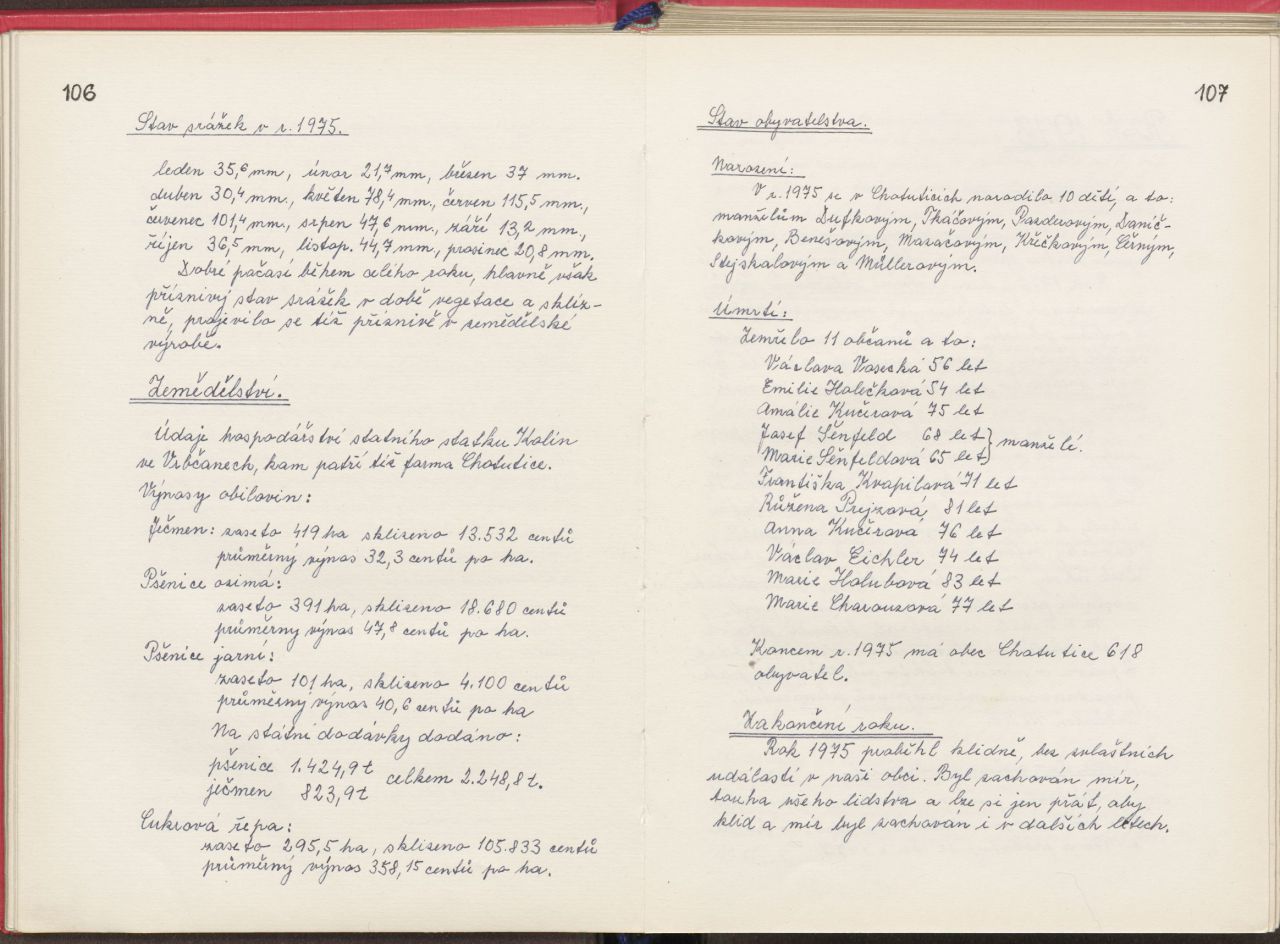 106
Stav srážek v r. 1975.
leden 35,6 mm, únor 21,7 mm, březen 37 mm.
duben 30,4 mm., květen 78,4 mm., červen 115,5 mm.,
červenec 101,4 mm., srpen 47,6 mm., září 13,2 mm.,
říjen 36,5 mm, listop. 44,7 mm, prosinec 20,8 mm.
Dobré počasí během celého roku, hlavně však
příznivý stav srážek v době vegetace a skliz-
ně, projevilo se též příznivě v zemědělské
výrobě.
Zemědělství.
Údaje hospodářství statního statku Kolín
ve Vrbčanech, kam patří též farma Chotutice.
Výnosy obilovin:
Ječmen: zaseto 419 ha sklizeno 13.532 centů
průměrný výnos 32,3 centů po ha.
Pšenice ozimá:
zaseto 391 ha, sklizeno 18.680 centů
průměrny výnos 47,8 centů po ha.
Pšenice jarní:
zaseto 101 ha, sklizeno 4.100 centů
průměrný výnos 40,6 centů po ha
Na státní dodávky dodáno:
pšenice 1.424,9 t
ječmen 823,9 t celkem 2.248,8 t.
Cukrová řepa:
zaseto 295,5 ha, sklizeno 105.833 centů
průměrný výnos 358,15 centů po ha.
107
Stav obyvatelstva.
Narození:
V r. 1975 se v Chotuticích narodilo 10 dětí, a to:
manželům Dufkovým, Tkáčovým, Pazderovým, Danič-
kovým, Benešovým, Mazačovým, Křečkovým, Černým,
Stejskalovým a Müllerovým.
Úmrtí:
Zemřelo 11 občanů a to:
Václava Vosecká 56 let
Emilie Holečková 54 let
Amálie Kučerová 75 let
Josef Šénfeld 68 let
Marie Šénfeldová 65 let } manželé.
Františka Kvapilová 71 let
Růžena Prejzová 81 let
Anna Kučerová 76 let
Václav Eichler 74 let
Marie Holubová 83 let
Marie Charouzová 77 let
Koncem r. 1975 má obec Chotutice 618
obyvatel.
Zakončení roku.
Rok 1975 proběhl klidně, bez zvlaštních
událostí v naší obci. Byl zachován mír,
touha všeho lidstva a lze si jen přát, aby
klid a mír byl zachován i v dalších letech.